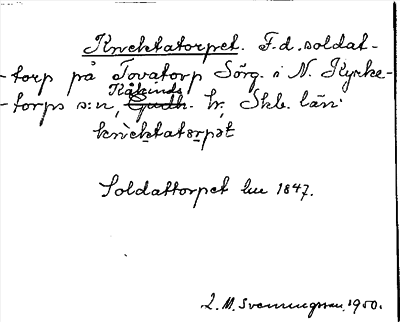 Knektatorpet. F.d. soldat-
-torp på Tovatorp Sörg. i N. Kyrke-
Kåkinds
-torps s:n, Gudh. hr, Skb. län.
knèktatɔrpət
Soldattorpet 1847.
L. M. Svenningsson, 1950.